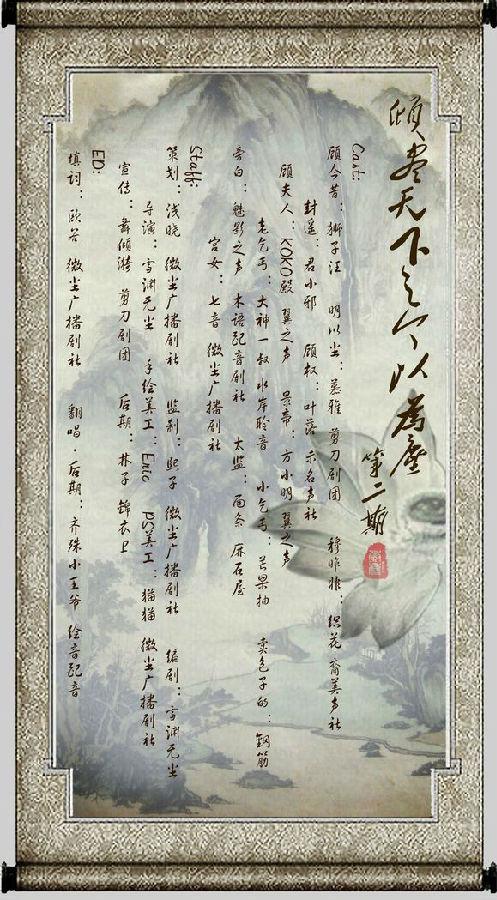 倾尽天下之宁以為塵
第二期
Cast:
顾今昔：狮子汪 明以尘：慕雅 剪刀剧团 穆昨非：织花裔美声社
封遥：君小邪 顾权：叶落 示名声社
顾夫人：KOKO殿 翼之声 景帝：方小明 翼之声
老乞丐：大神一叔 水岸聆音 小乞丐：芒果抽 卖包子的：钢筋
旁白：魅影之声 木语配音剧社 太监：面条 屏石屋
宫女：七音 微尘广播剧社
Staff:
策划：浅晓 微尘广播剧社 监制：熙子 微尘广播剧社 编剧：雪渊无尘
导演：雪渊无尘 手绘美工：Enic PS美工：猫猫 微尘广播剧社
宣传：舞倾漪 剪刀剧团 后期：林子 锦衣卫
ED:
填词： 微尘广播剧社 翻唱·后期：齐殊小王爷 绘音配音